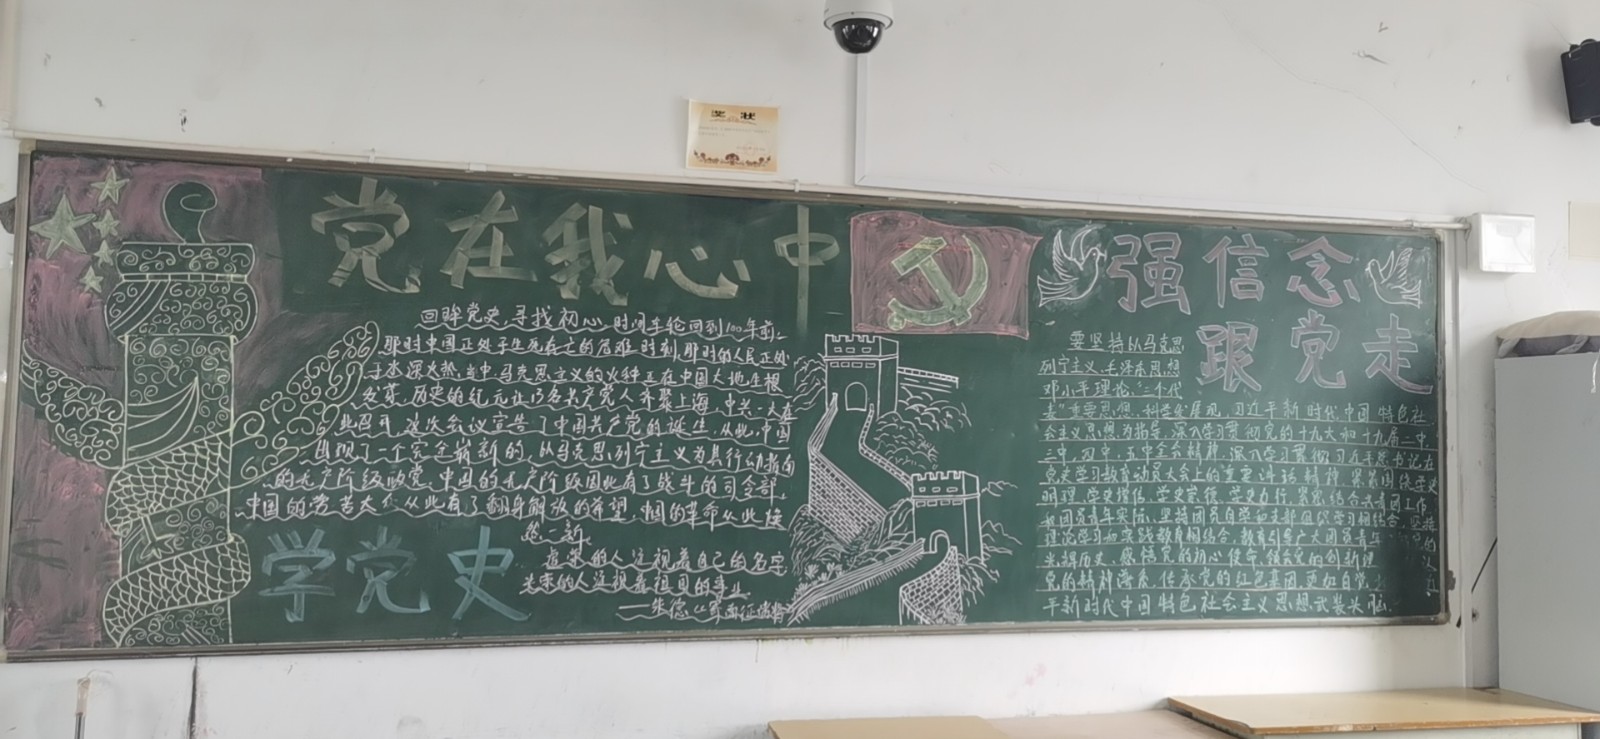 奖状
党在我心中
回眸党史,寻找初心,时间车轮回到100年前,
那时中国正处于生死存亡的危难时刻,那时的人民正处
于水深火热当中,马克思主义的火种正在中国大地生根
发芽,历史的纪元让13名共产党人齐聚上海,中共一大在
此召开,这次会议宣告了中国共产党的诞生,从此,中国
出现了一个完全崭新的,以马克思列宁主义为其行动指南
的无产阶级政党,中国的无产阶级因此有了战斗的司令部,
中国的劳苦大众从此有了翻身解放的希望,中国的革命从此焕
然一新。
追策的人注视着自己的名字
未来的人注视着祖国的事业
——朱德《
学党史
强信念
跟党走
要坚持以马克思
列宁主义、毛泽东思想
邓小平理论、三个代
表"重要思想,科学发展观,习近平新时代中国特色社
会主义思想为指导,深入学习贯彻党的十九大和十九届二中,
三中,四中,五中全会精神,深入学习贯彻习近平总书记在
党史学习教育动员大会上的重要讲话精神,紧紧围绕学史
明理,学史增信,学史崇德,学史力行,紧密结合共青团工作,
和团员青年实际,坚持团员自学和支部组织学习相结合,坚持
理论学习和实践教育相结合,教育引导广大团员青年
来路历史,感悟党的初心使命,领会党的创新理
党的精神谱系,传承党的红色基因,更加自觉
平新时代中国特色社会主义思想武装头脑。